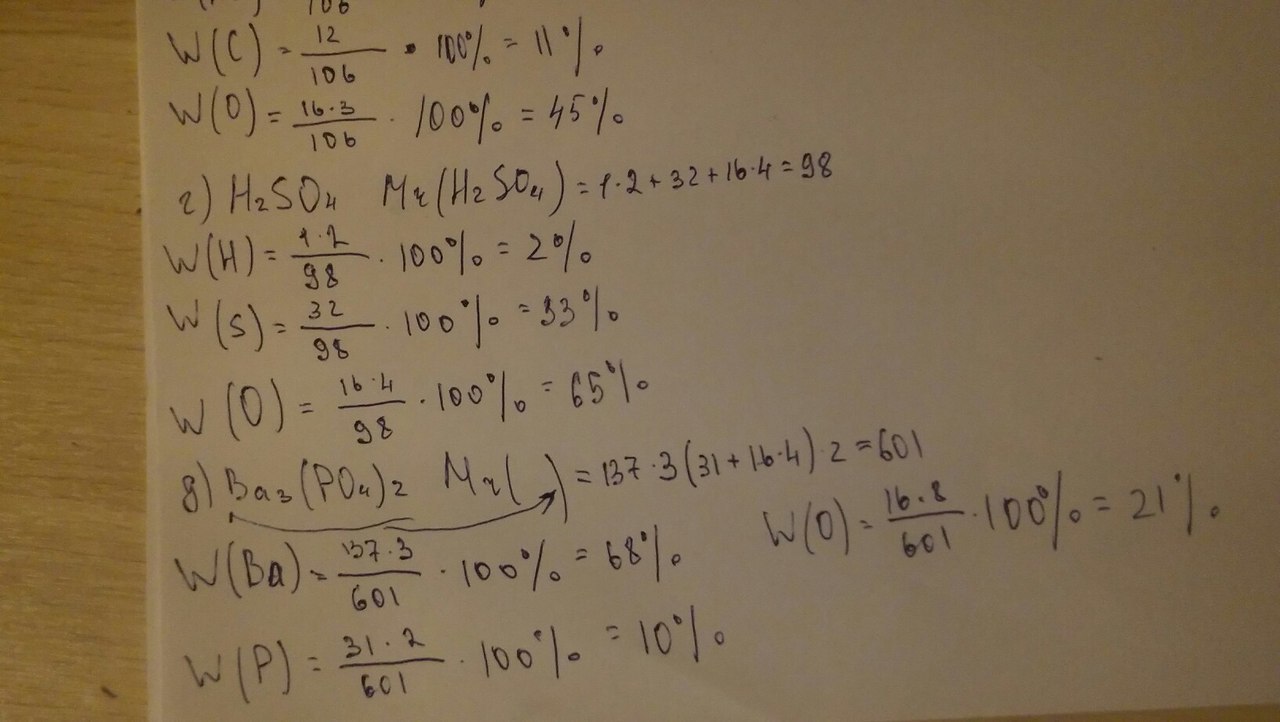 106
W(C) = 12/106 · 100% = 11%
W(O) = 16·3/106 · 100% = 45%
г) H₂SO₄ Mr(H₂SO₄) = 1·2 + 32 + 16·4 = 98
W(H) = 1·2/98 · 100% = 2%
W(S) = 32/98 · 100% = 33%
W(O) = 16·4/98 · 100% = 65%
д) Ba₃(PO₄)₂ Mr( ) = 137·3(31 + 16·4)·2 = 601
W(Ba) = 137·3/601 · 100% = 68%
W(O) = 16·8/601 · 100% = 21%.
W(P) = 31·2/601 · 100% = 10%